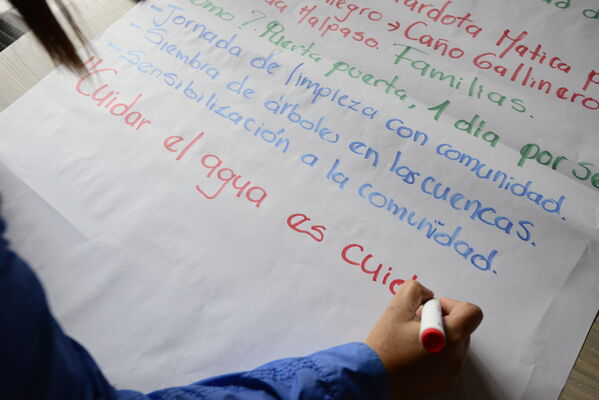 negro → Caño Gallinero
da Malpaso.
Como? Puerta puerta, 1 dia por se
Familias.
- Jornada de limpieza con comunidad.
- Siembra de árboles en las cuencas.
- Sensibilización a la comunidad.
"Cuidar el agua es cuid